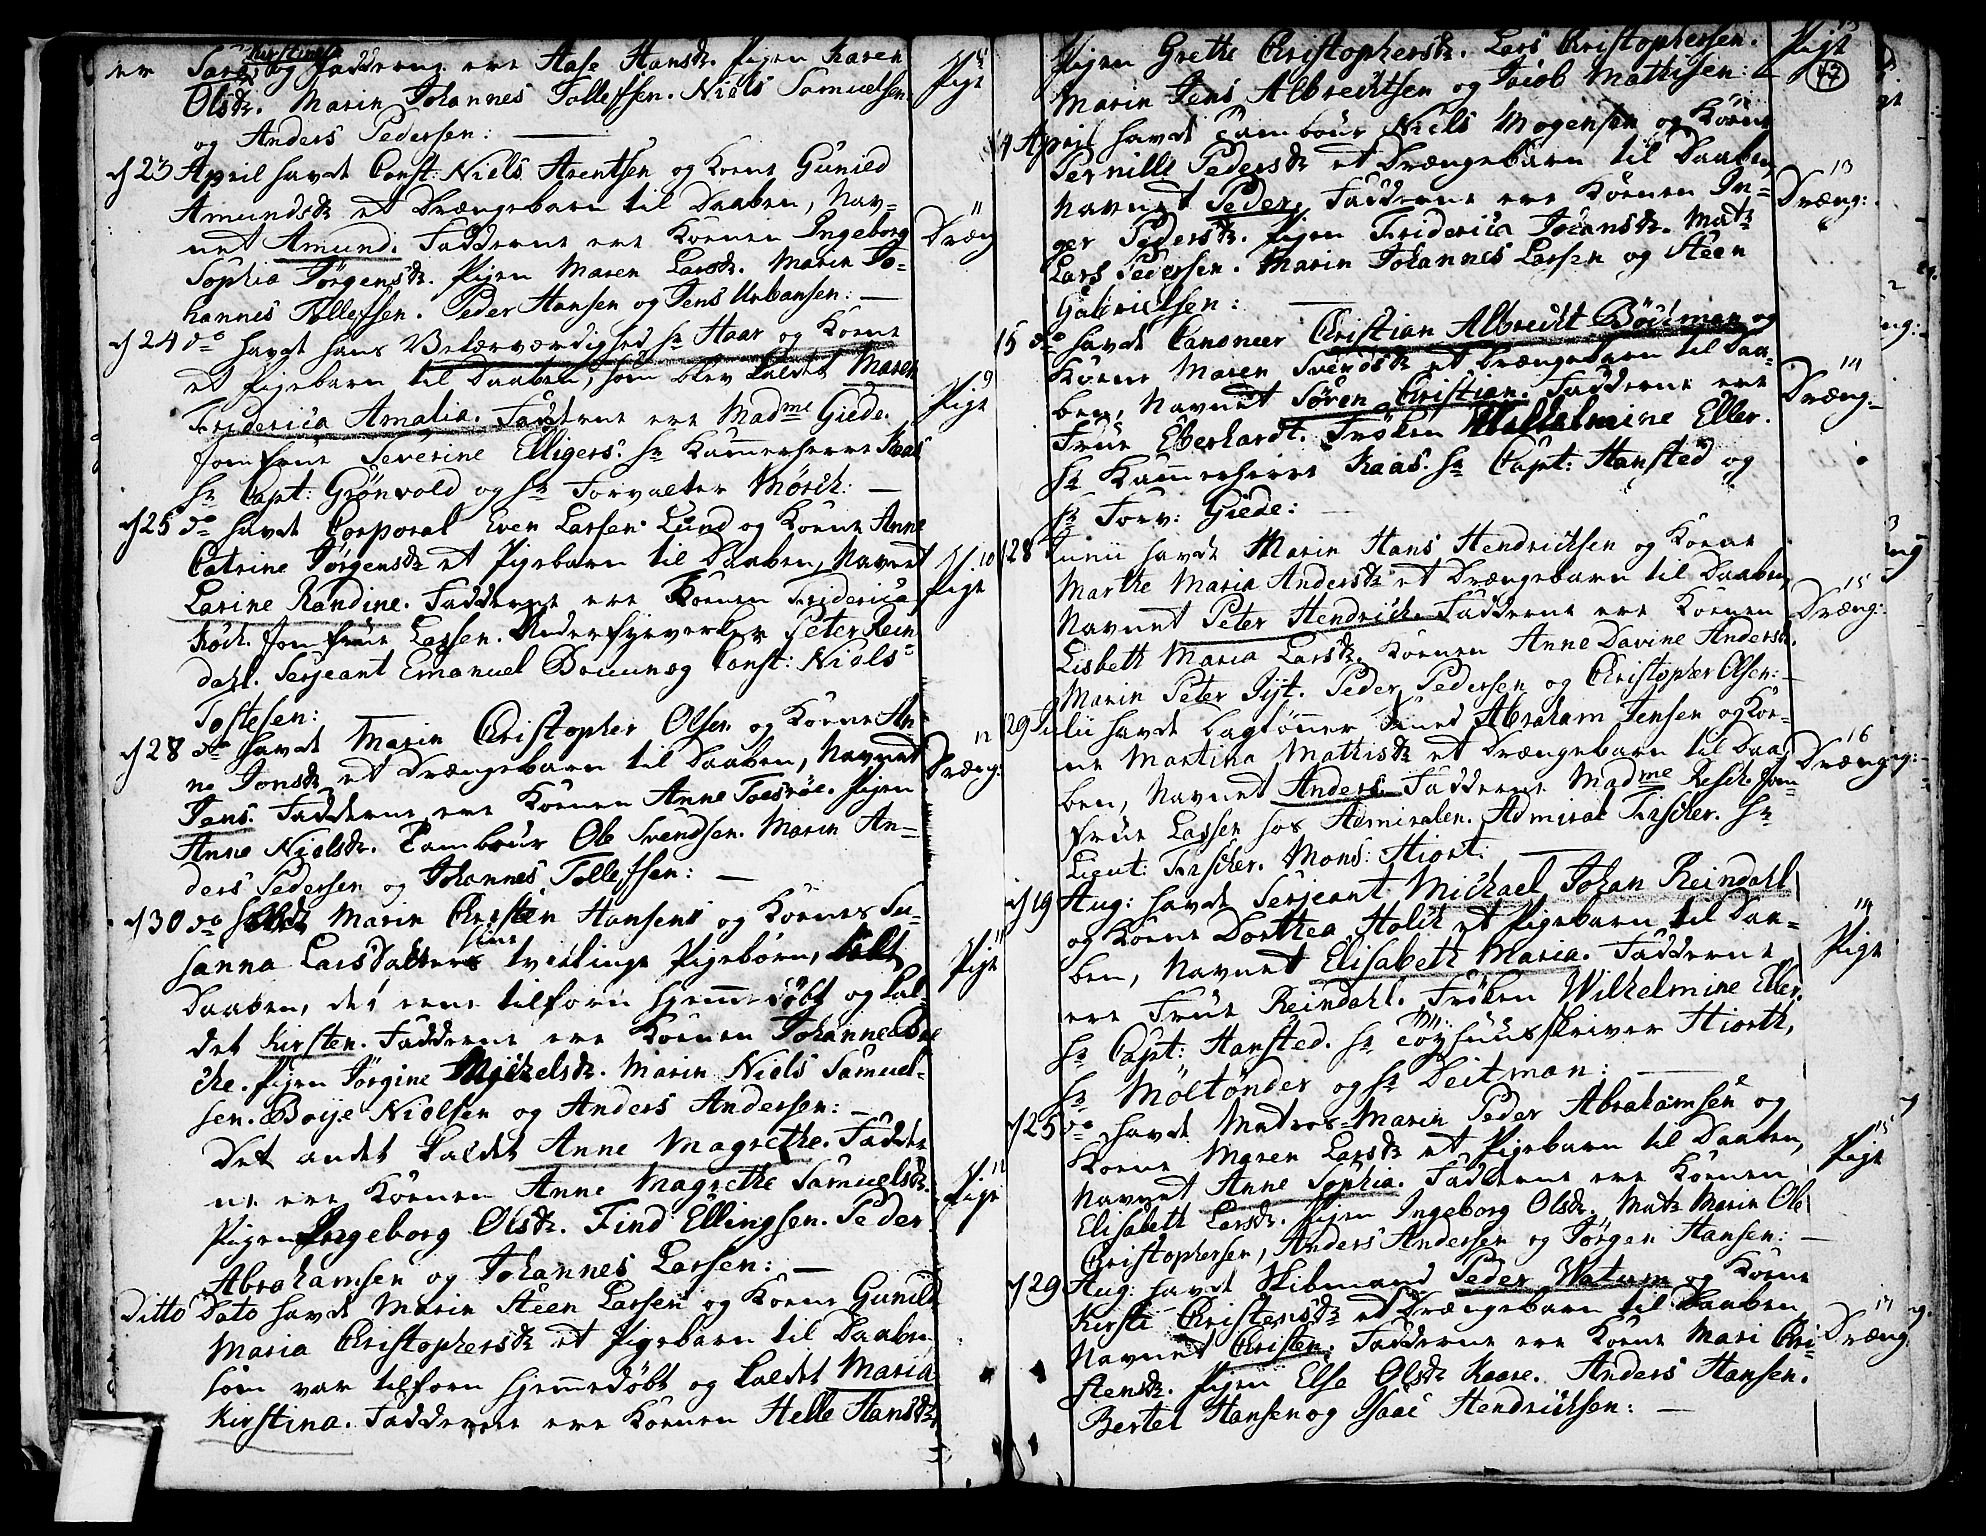 er Sara Kirstina og Fadderne ere Aase Hansdr. Pigen Karen
Olsdr. Marin Johannes Tollefsen. Niels Samuelsen
og Anders Pedersen: —
Pige
d 23 April havde Const: Niels Arentsen og Kone Gunild
Amundsdr et Drængebarn til Daaben, Nav-
net Amund. Fadderne ere Konen Ingeborg
Sophia Jørgensdr. Pigen Maren Larsdr. Marin Jo-
hannes Tollefsen. Peder Hansen og Jens Urbansen: —
11
Dræng
d 24 do havde hans Velærværdighed Hr Haar og Kone
et Pigebarn til Daaben, som blev kaldet Maren
Friderica Amalia. Fadderne ere Madme Giede.
Jomfrue Severine Elligers. Hr Kammerherre Kaas
Hr Capt: Grönvold og Hr Forvalter Mörch: —
9
Pige
d 25 do havde Corporal Even Larsen Lund og Kone Anne
Catrine Jørgensdr et Pigebarn til Daaben, Navnet
Larine Randine. Fadderne ere Konen Friderica
Koch. Jomfrue Lassen. Underfyrverker Peter Rein
dahl. Serjeant Emanuel Bruun og Const: Niels
Toftesen: —
10
Pige
d 28 do havde Marin Christopher Olsen og Kone An
ne Jonsdr et Drængebarn til Daaben, Navnet
Jens. Fadderne ere Konen Anne Toesröe. Pigen
Anne Nielsdr. Tambour Ole Svendsen. Marin An-
ders Pedersen og Johannes Tollefsen: —
12
Dræng:
d 30 do havde Marin Christen Hansen og Kones Su-
sanna Larsdatters sine tvillinge Pigebørn,
Daaben, det eene tilforn hjemmedöbt og kal-
det Kirsten. Fadderne ere Konen Johanne
cke. Pigen Jørgine Mickelsdr. Marin Niels Samuel-
sen. Boye Nielsen og Anders Andersen: —
11
Pige
Det andet kaldet Anne Magrethe. Fadder
ne ere Konen Anne Magrethe Samuelsdr.
Pigen Ingeborg Olsdr. Find Ellingsen. Peder
Abrahamsen og Johannes Larsen: —
12
Pige
Ditto Dato havde Marin Steen Larsen og Kone Gunild
Maria Christophersdr et Pigebarn til Daaben
som var tilforn hjemmedöbt og kaldet Maria
Kirstina. Fadderne ere Konen Helle Hansdr.
47
Pigen Grethe Christophersdr. Lars Christophersen.
Marin Jens Albrechtsen og Jacob Mathisen: —
13
Pige
April havde Tambour Niels Mogensen og Kone
Pernille Pedersdr et Drængebarn til Daaben,
Navnet Peder. Fadderne ere Konen In-
ger Pedersdr. Pigen Friderica Johansdr. Matr
Lars Pedersen. Marin Johannes Larsen og Steen
Gabrielsen: —
13
Dræng:
15 do havde Canoneer Christian Albrecht Böckman og
Kone Maren Svendsdr et Drængebarn til Daa-
ben, Navnet Søren Christian. Fadderne ere
Frue Eberhardt. Fröken Wilhelmine Eller.
Hr Kammerherre Kaas. Hr Capt: Hansted og
Hr Forv: Giede: —
14
Dræng:
28 Junii havde Marin Hans Hendrichsen og Kone
Marthe Maria Andersdr et Drængebarn til Daaben,
Navnet Peter Hendrich. Fadderne ere Konen
Lisbeth Maria Larsdr. Konen Anne Davine Andersdr.
Marin Peter Gyt. Peder Pedersen og Christopher Olsen: —
15
Dræng:
29 Julii havde Bagtönner Svend Abraham Jensen og Ko-
ne Martina Mattisdr et Drængebarn til Daa-
ben, Navnet Anders. Fadderne Madme Resch. Jom-
frue Lassen hos Admiralen. Admiral Fischer. Hr
Lieut: Fischer. Mons: Hiort: —
16
Dræng:
d 19 Aug: havde Serjeant Michael Johan Reindahl
og Kone Dorthea Holst et Pigebarn til Daa-
ben, Navnet Elisabeth Maria. Fadderne
ere Frue Reindahl. Fröken Wilhelmine Eller.
Hr Capt: Hansted. Hr Töyhuusskriver Hiorth,
Hr Möltönder og Hr Deitman: —
14
Pige
d 25 do havde Matros-Marin Peder Abrahamsen og
Kone Maren Larsdr et Pigebarn til Daaben,
Navnet Anne Sophia. Fadderne ere Konen
Elisabeth Larsdr. Pigen Ingeborg Olsdr. Matr Marin Ole
Christophersen, Anders Andersen og Jørgen Hansen: —
15
Pige
d 29 Aug: havde Skibmand Peder Watum og Kone
Kirsti Christensdr et Drængebarn til Daaben,
Navnet Christen. Fadderne ere Kone Mari Chri-
stensdr. Pigen Else Olsdr Kaare. Anders Hansen.
Bertel Hansen og Isaac Hendrichsen: —
17
Dræng